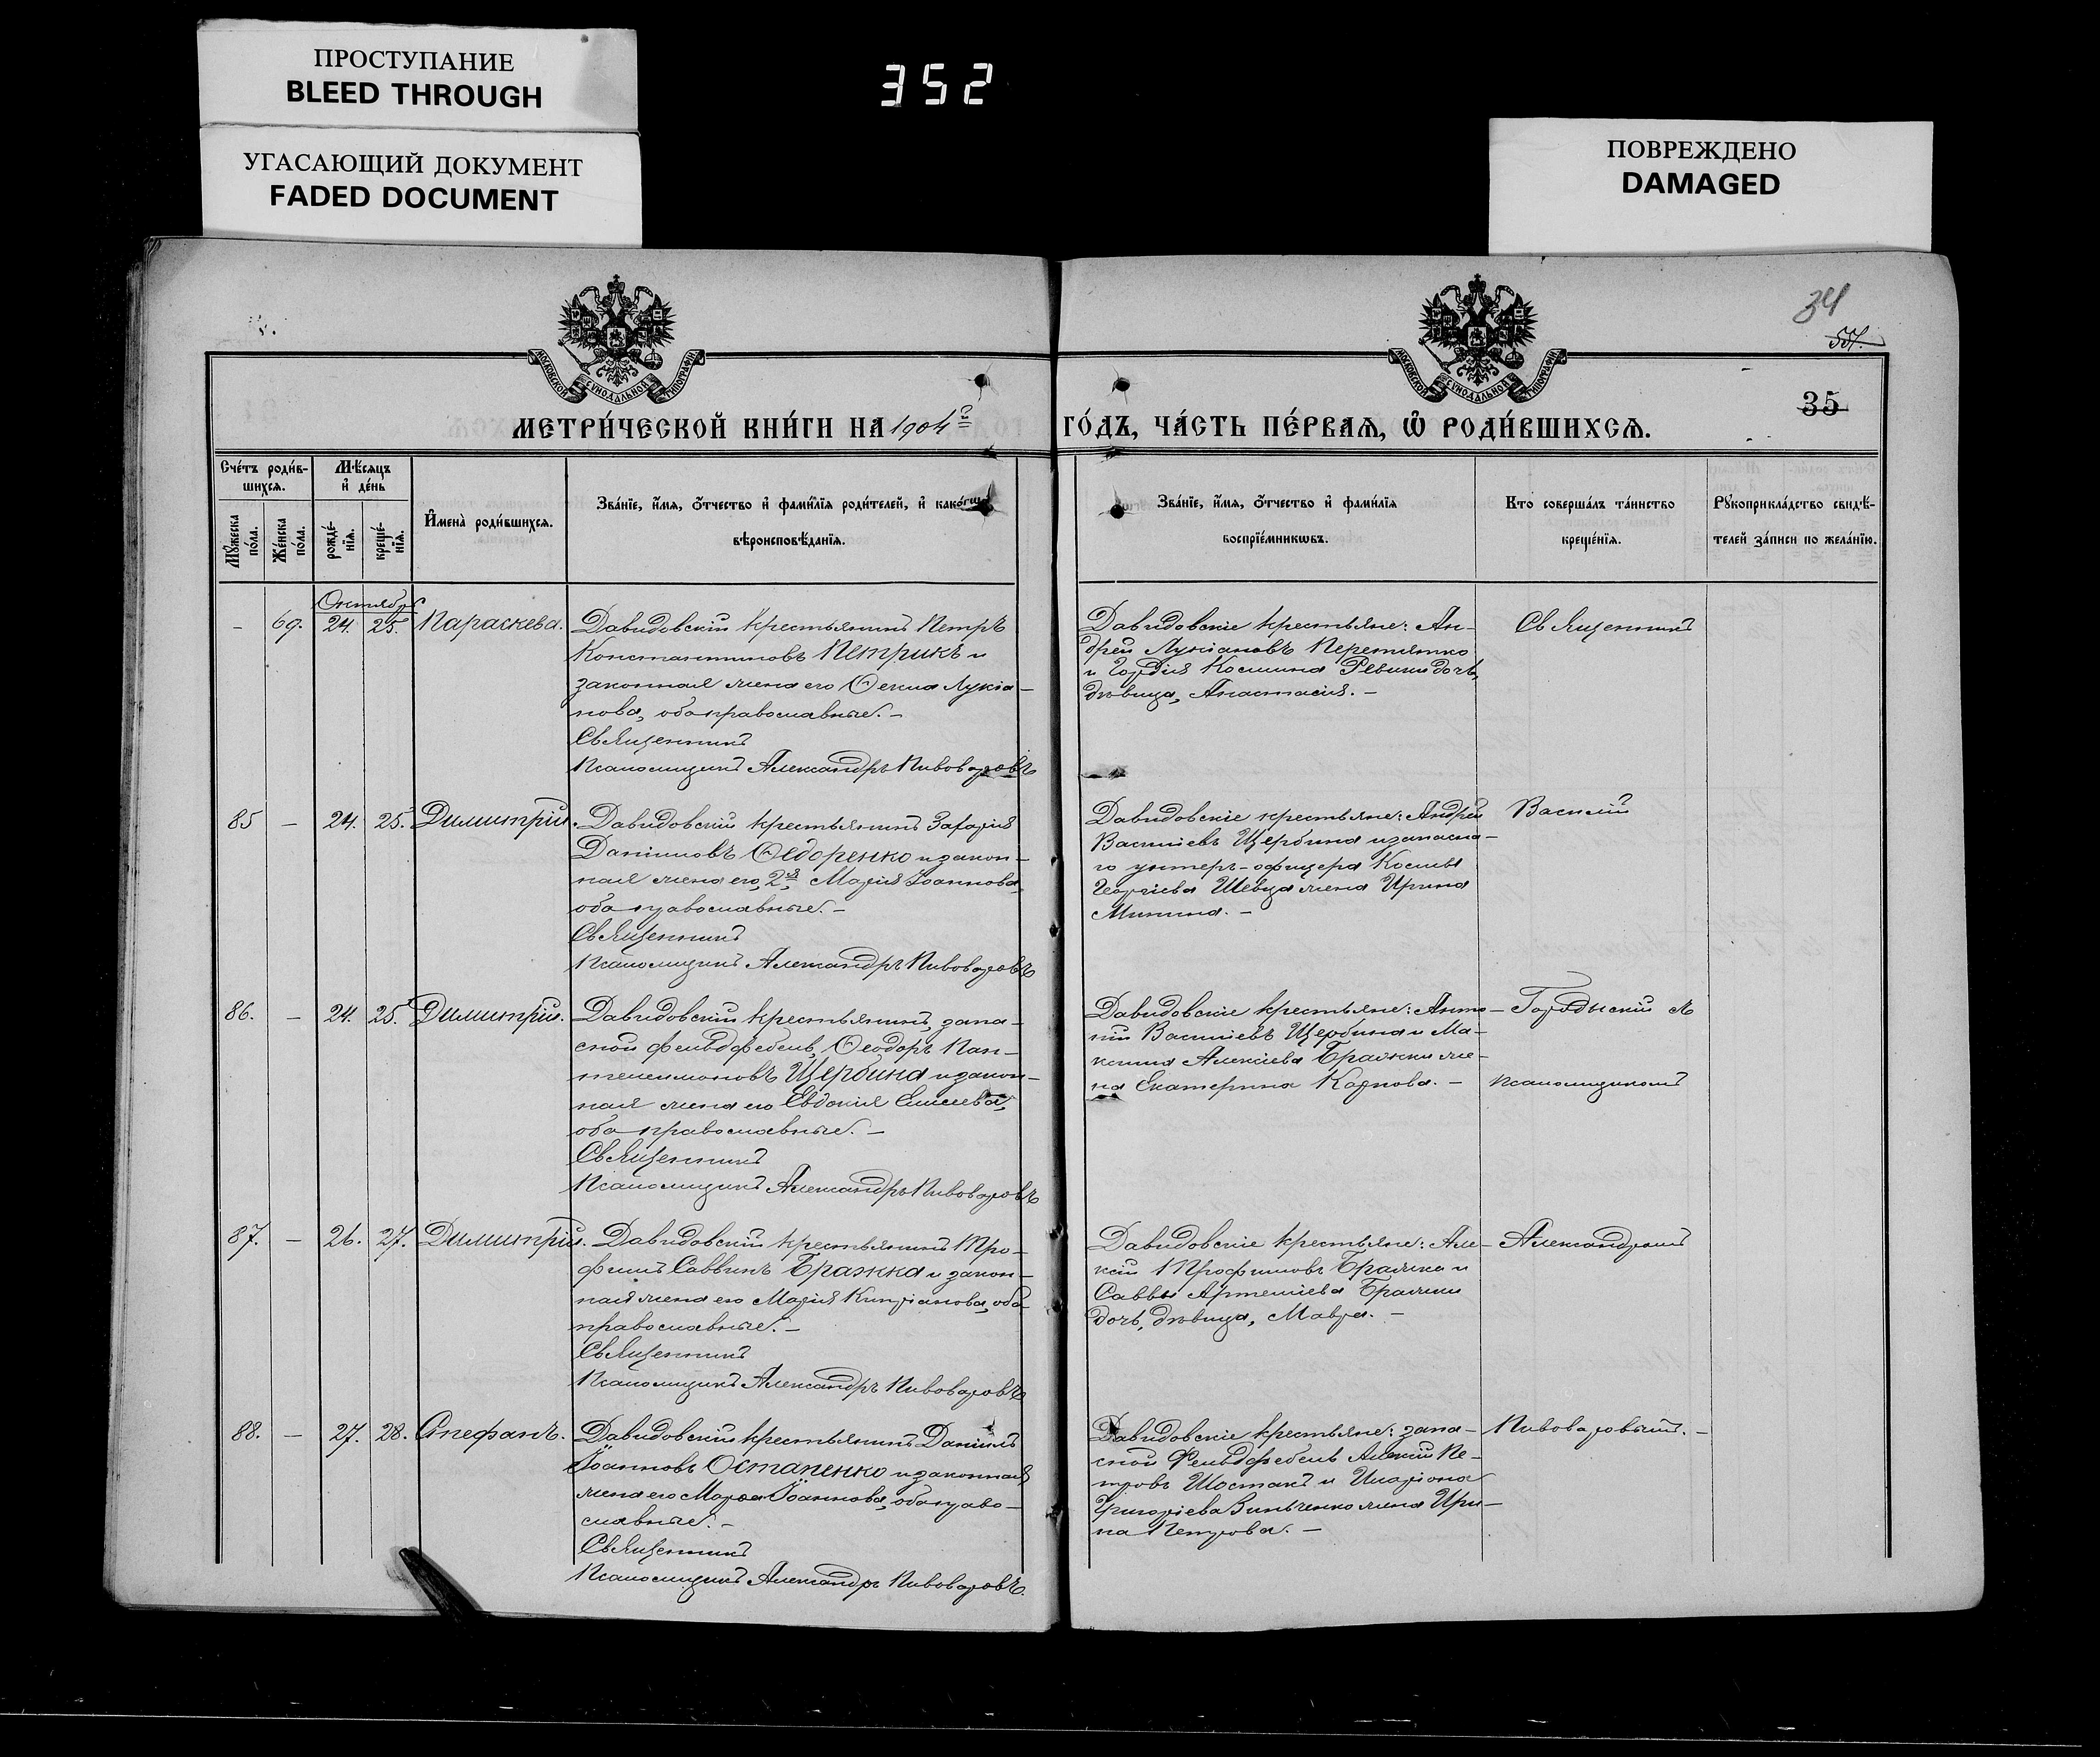 ПРОСТУПАНИЕ
BLEED THROUGH
УГАСАЮЩИЙ ДОКУМЕНТ
FADED DOCUMENT
352
ПОВРЕЖДЕНО
DAMAGED
34
35
МОСКОВСКОЙ СУНОДАЛЬНОЙ ТИПОГРАФІИ
МОСКОВСКОЙ СУНОДАЛЬНОЙ ТИПОГРАФІИ
МЕТРИ́ЧЕСКОЙ КНИ́ГИ НА 1904й ГО́ДЪ, ЧА́СТЬ ПЕ́РВАѦ, Ѡ РОДИ́ВШИХСѦ.
Сче́тъ роди́вшихсѧ.
Мꙋжеска по́ла.
Же́нска по́ла.
Мѣ́сѧцъ и де́нь
рожде́нїѧ.
креще́нїѧ.
Имена̀ роди́вшихсѧ.
Зва́нїе, и́мѧ, о́тчество и фами́лїѧ роди́телей, и како́гѡ
вѣроисповѣ́данїѧ.
Зва́нїе, и́мѧ, о́тчество и фами́лїѧ
воспрїе́мникѡвъ.
Кто соверша́лъ та́инство
креще́нїѧ.
Рꙋкоприкла́дство свидѣ́-
телей за́писи по жела́нїю.
Октябрь
– 69. 24. 25. Параскева.
Давидовскій крестьянинъ Петръ
Константиновъ Петрикъ и
законная жена его Ѳекла Лукіа-
нова, оба православные. –
Священникъ
Псаломщикъ Александръ Пивоваровъ
Давидовскіе крестьяне: Ан-
дрей Лукіановъ Перетятко
и Гордія Космина Ревики дочь,
дѣвица, Анастасія. –
Священникъ
85 – 24. 25. Димитрій.
Давидовскій крестьянинъ Захарія
Даніиловъ Ѳедоренко и закон-
ная жена его, 2я, Марія Іоаннова,
оба православные. –
Священникъ
Псаломщикъ Александръ Пивоваровъ
Давидовскіе крестьяне: Андрей
Васильевъ Щербина и запасна-
го унтеръ-офицера Космы
Георгіева Шевца жена Ирина
Минина. –
Василій
86. – 24. 25. Димитрій.
Давидовскій крестьянинъ, запа-
сной фельдфебель, Ѳеодоръ Пан-
телеимоновъ Щербина и закон-
ная жена его Евдокія Елисеева,
оба православные. –
Священникъ
Псаломщикъ Александръ Пивоваровъ
Давидовскіе крестьяне: Анто-
ній Васильевъ Щербина и Ма-
ксима Алексіева Бражки же-
на Екатерина Карпова. –
Городыскій съ
псаломщикомъ
87. – 26. 27. Димитрій.
Давидовскій крестьянинъ Тро-
фимъ Саввинъ Бражка и закон-
ная жена его Марія Кипріанова, оба
православные. –
Священникъ
Псаломщикъ Александръ Пивоваровъ
Давидовскіе крестьяне: Але-
ксій Трофимовъ Бражка и
Саввы Артеміева Бражки
дочь, дѣвица, Мавра. –
Александромъ
88. – 27. 28. Стефанъ.
Давидовскій крестьянинъ Даніилъ
Іоанновъ Остапенко и законная
жена его Марѳа Іоаннова, оба право-
славные. –
Священникъ
Псаломщикъ Александръ Пивоваровъ.
Давидовскіе крестьяне: запа-
сной Фельдфебель Алексій Пе-
тровъ Шостакъ и Иларіона
Григоріева Зинченко жена Ири-
на Петрова. –
Пивоваровымъ. –